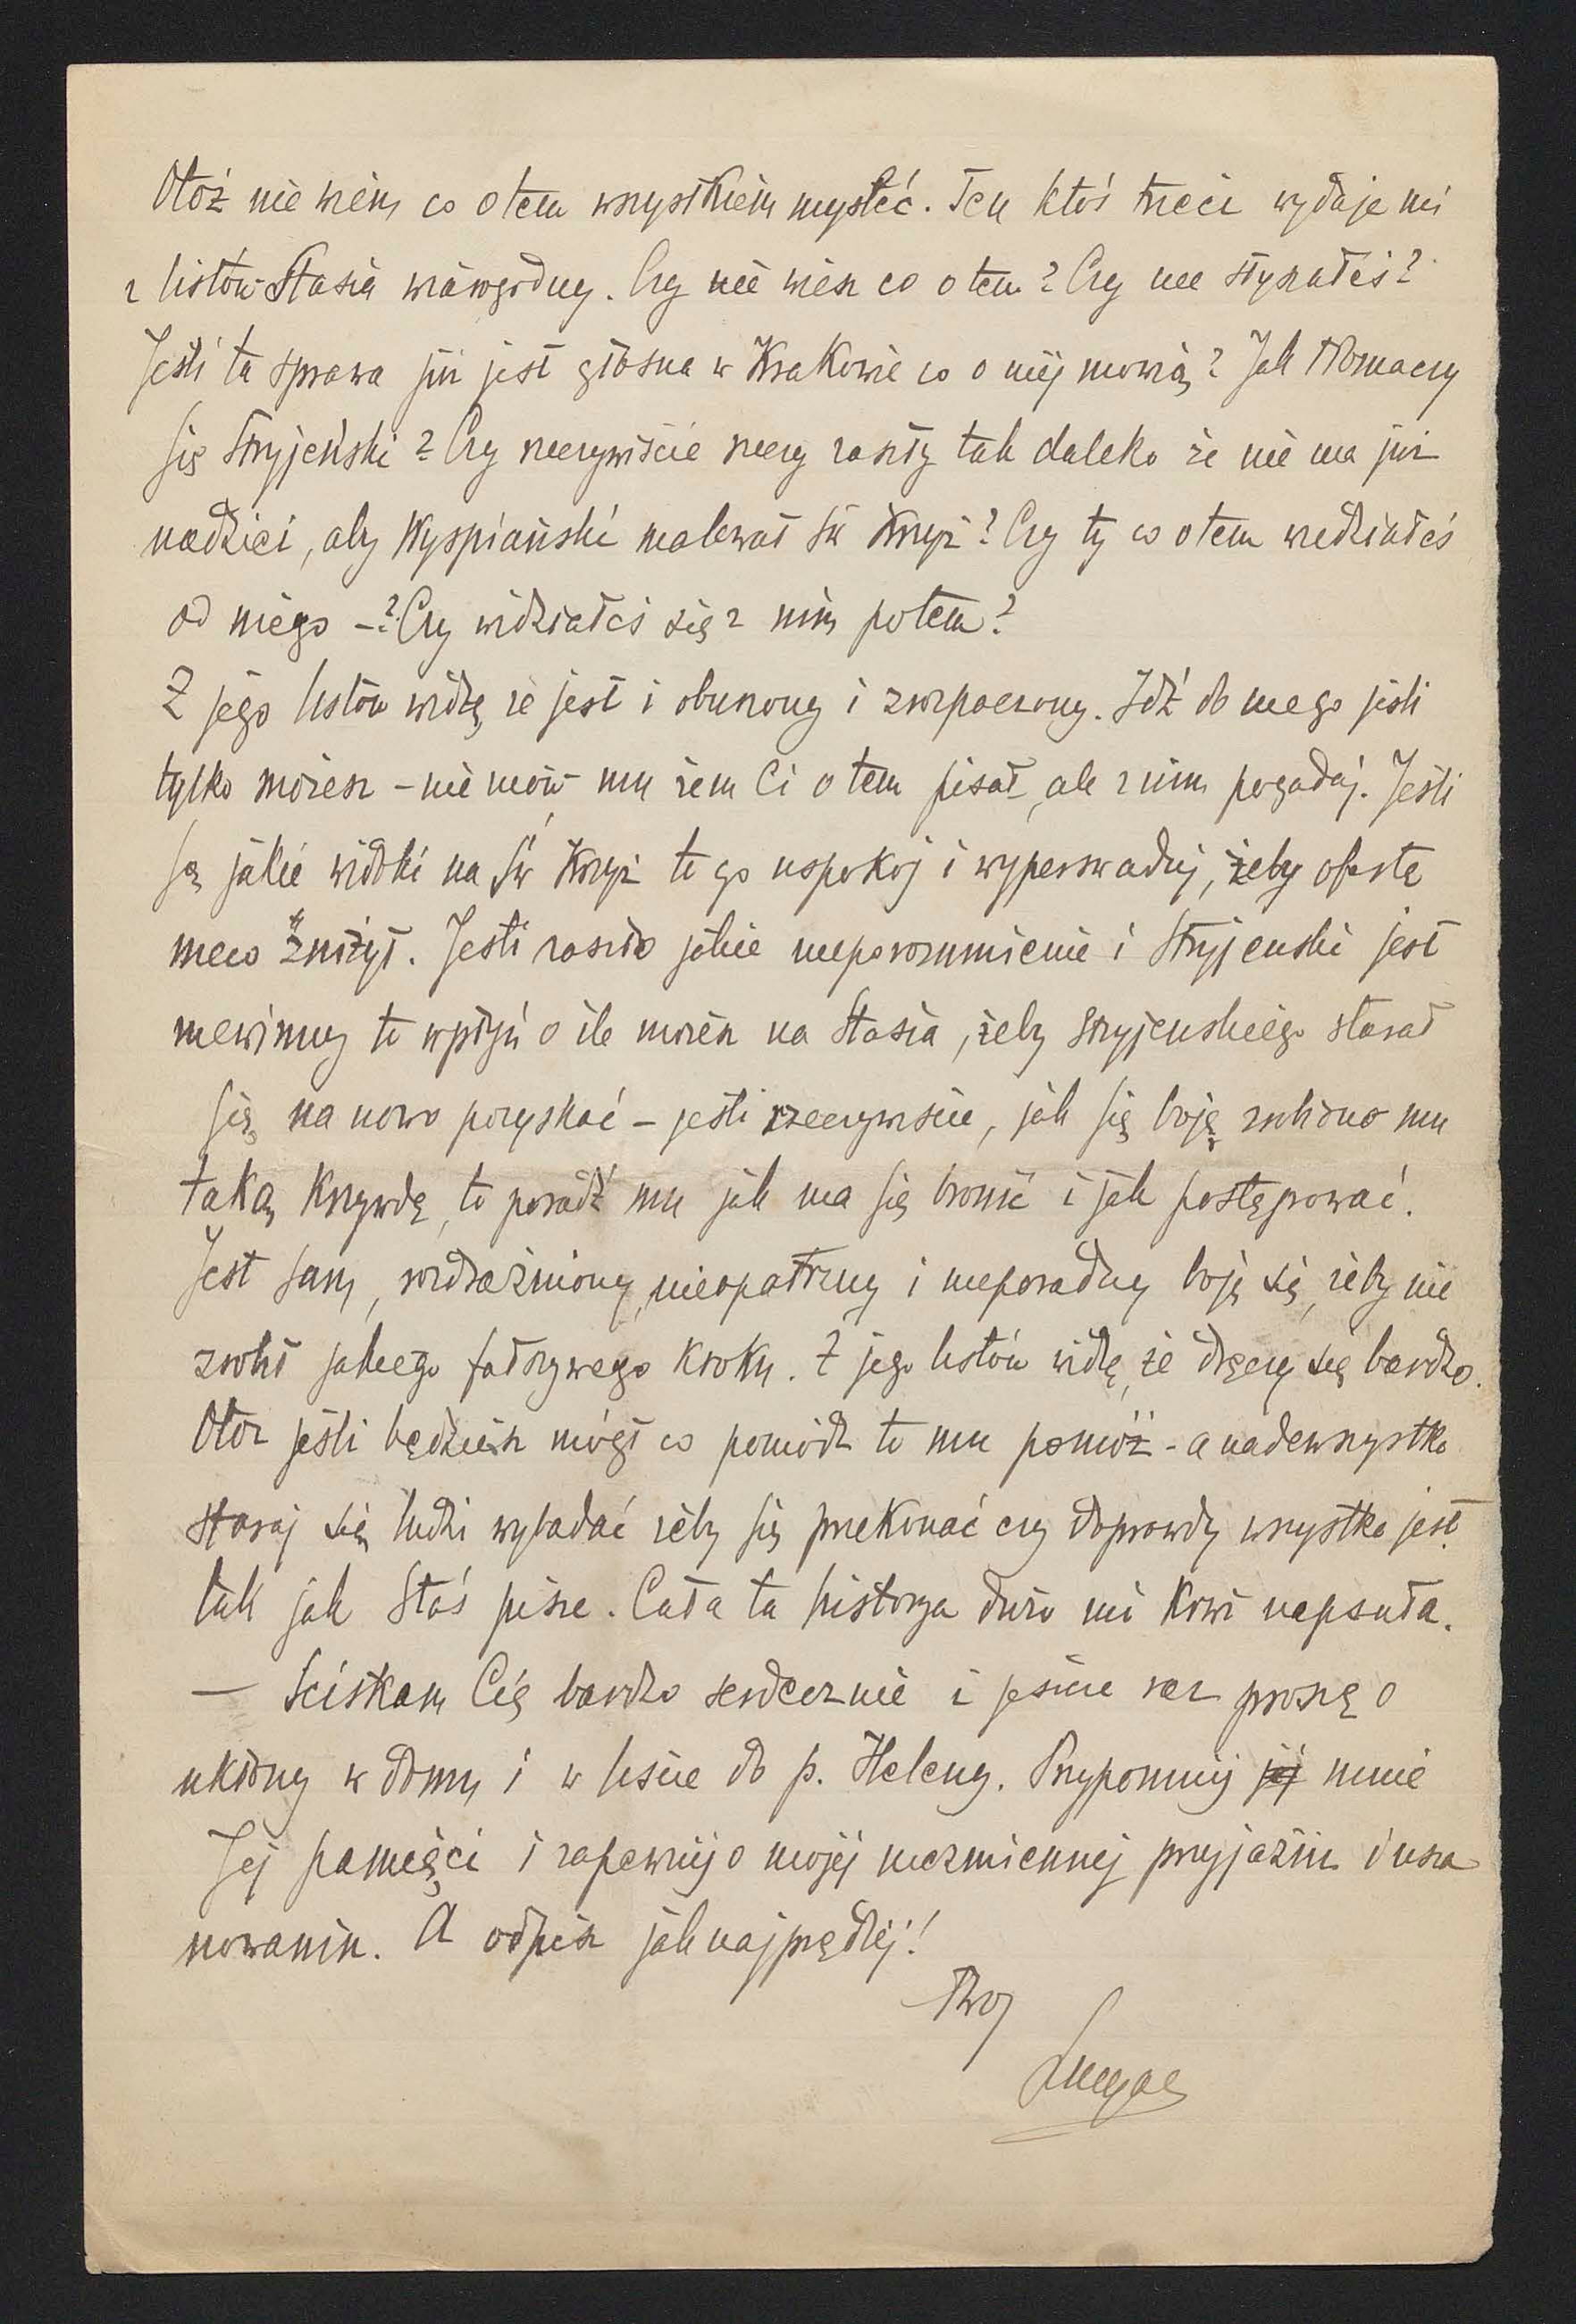 Otóż nie wiem co o tem wszystkiem myśleć. Ten ktoś trzeci wydaje mi
z listów Stasia wiarogodny. Czy nie wiesz co o tem? Czy nie słyszałeś?
Jeśli ta sprawa już jest głośna w Krakowie co o niej mowią? Jak tłomaczy
się Stryjeński? Czy rzeczywiście rzeczy zaszły tak daleko że nie ma już
nadziei, aby Wyspiański malował Sw Krzyż? Czy ty co o tem wiedziałeś
od niego –? Czy widziałeś się z nim potem?
Z jego listów widzę że jest i oburzony i zrozpaczony. Idź do niego jeśli
tylko możesz – nie mów mu żem Ci o tem pisał, ale z nim pogadaj. Jeśli
są jakie widoki na Św Krzyż to go uspokój i wyperswaduj, żeby ofertę
nieco zniżył. Jeśli zaszło jakie nieporozumienie i Stryjenski jest
niewinny to wpłyń o ile możesz na Stasia, żeby Stryjenskiego starał
się na nowo pozyskać – jeśli rzeczywiście, jak się boję zrobiono mu
taką krzywdę, to poradź mu jak ma się bronić i jak postępować.
Jest sam, rozdrażniony, nieopatrzny i nieporadny boję się, żeby nie
zrobił jakiego fałszywego kroku. Z jego listów widzę, że dręczy się bardzo.
Otoz jeśli będziesz mógł co pomódz to mu pomóż – a nadewszystko
staraj się ludzi wybadać żeby się przekonać czy doprawdy wszystko jest
tak jak Staś pisze. Cała ta historya dużo mi krwi napsuła.
— Sciskam Cię bardzo serdecznie i jeszcze raz proszę o
ukłony w domu i w liście do p. Heleny. Przypomnij jej mnie
Jej pamięci i zapewnij o mojej niezmiennej przyjaźni i usza
nowaniu. A odpisz jaknajprędzej!
Twoj